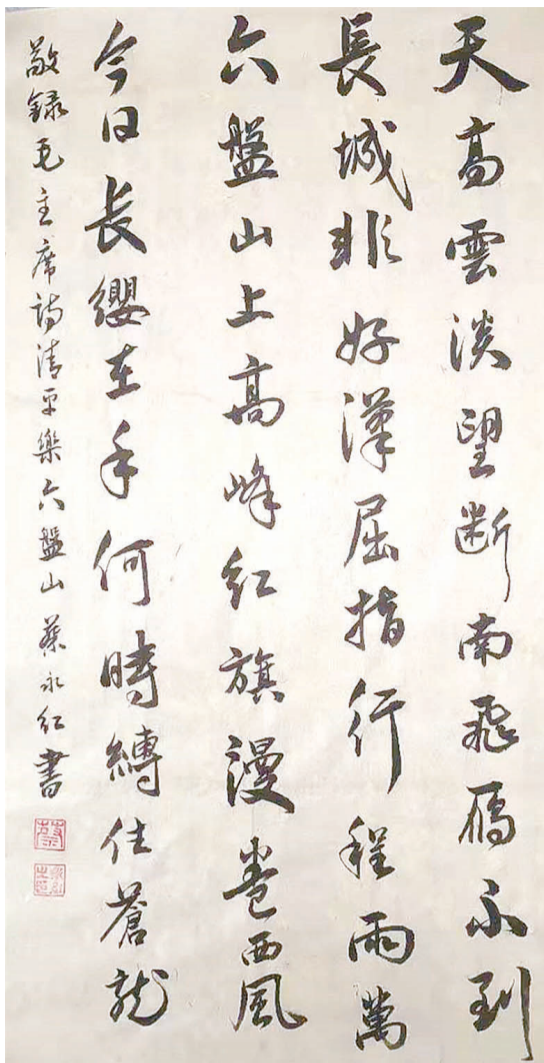 天高雲淡望斷南飛雁不到
長城非好漢屈指行程兩萬
六盤山上高峰紅旗漫卷西風
今日長纓在手何時縛住蒼龍
敬錄毛主席詩清平樂六盤山 蔡永紅書